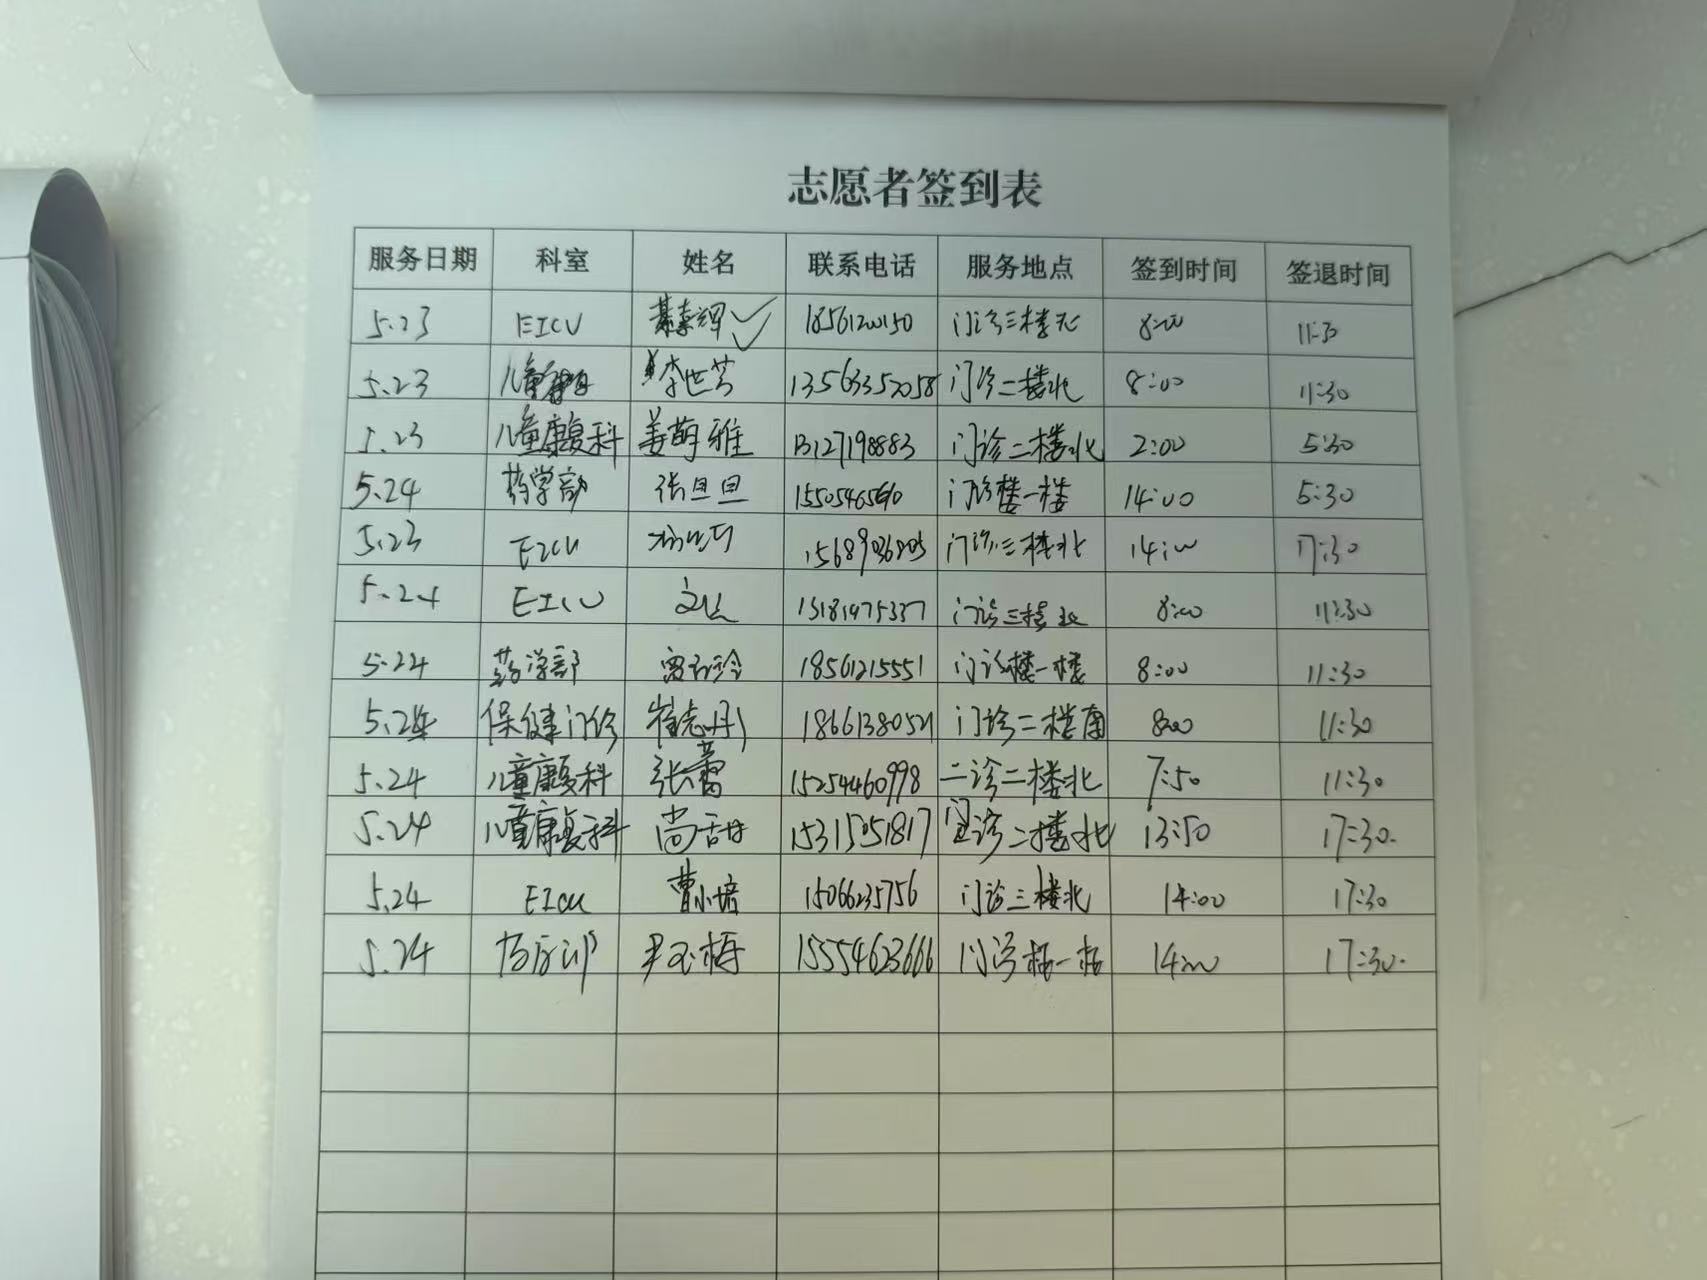 志愿者签到表
服务日期 科室 姓名 联系电话 服务地点 签到时间 签退时间
5.23 EICU 18561200150 门诊三楼北 8:00 11:30
5.23 李世芳 13563352058 门诊二楼北 8:00 11:30
5.23 儿童康复科 姜萌雅 13127198883 门诊二楼北 2:00 5:30
5.24 药学部 张旦旦 门诊楼一楼 14:00 5:30
5.23 EICU 门诊三楼北 14:00 17:30
5.24 EICU 13181975337 门诊三楼北 8:00 11:30
5.24 药学部 18561215551 门诊楼一楼 8:00 11:30
5.24 保健门诊 崔志丹 18661380521 门诊二楼南 8:00 11:30
5.24 儿童康复科 张蕾 15254460998 二诊二楼北 7:50 11:30
5.24 儿童康复科 尚甜甜 15315051817 门诊二楼北 13:50 17:30.
5.24 EICU 曹小培 15066235756 门诊三楼北 14:00 17:30
5.24 尹玉梅 15554623666 门诊楼一楼 14:00 17:30.